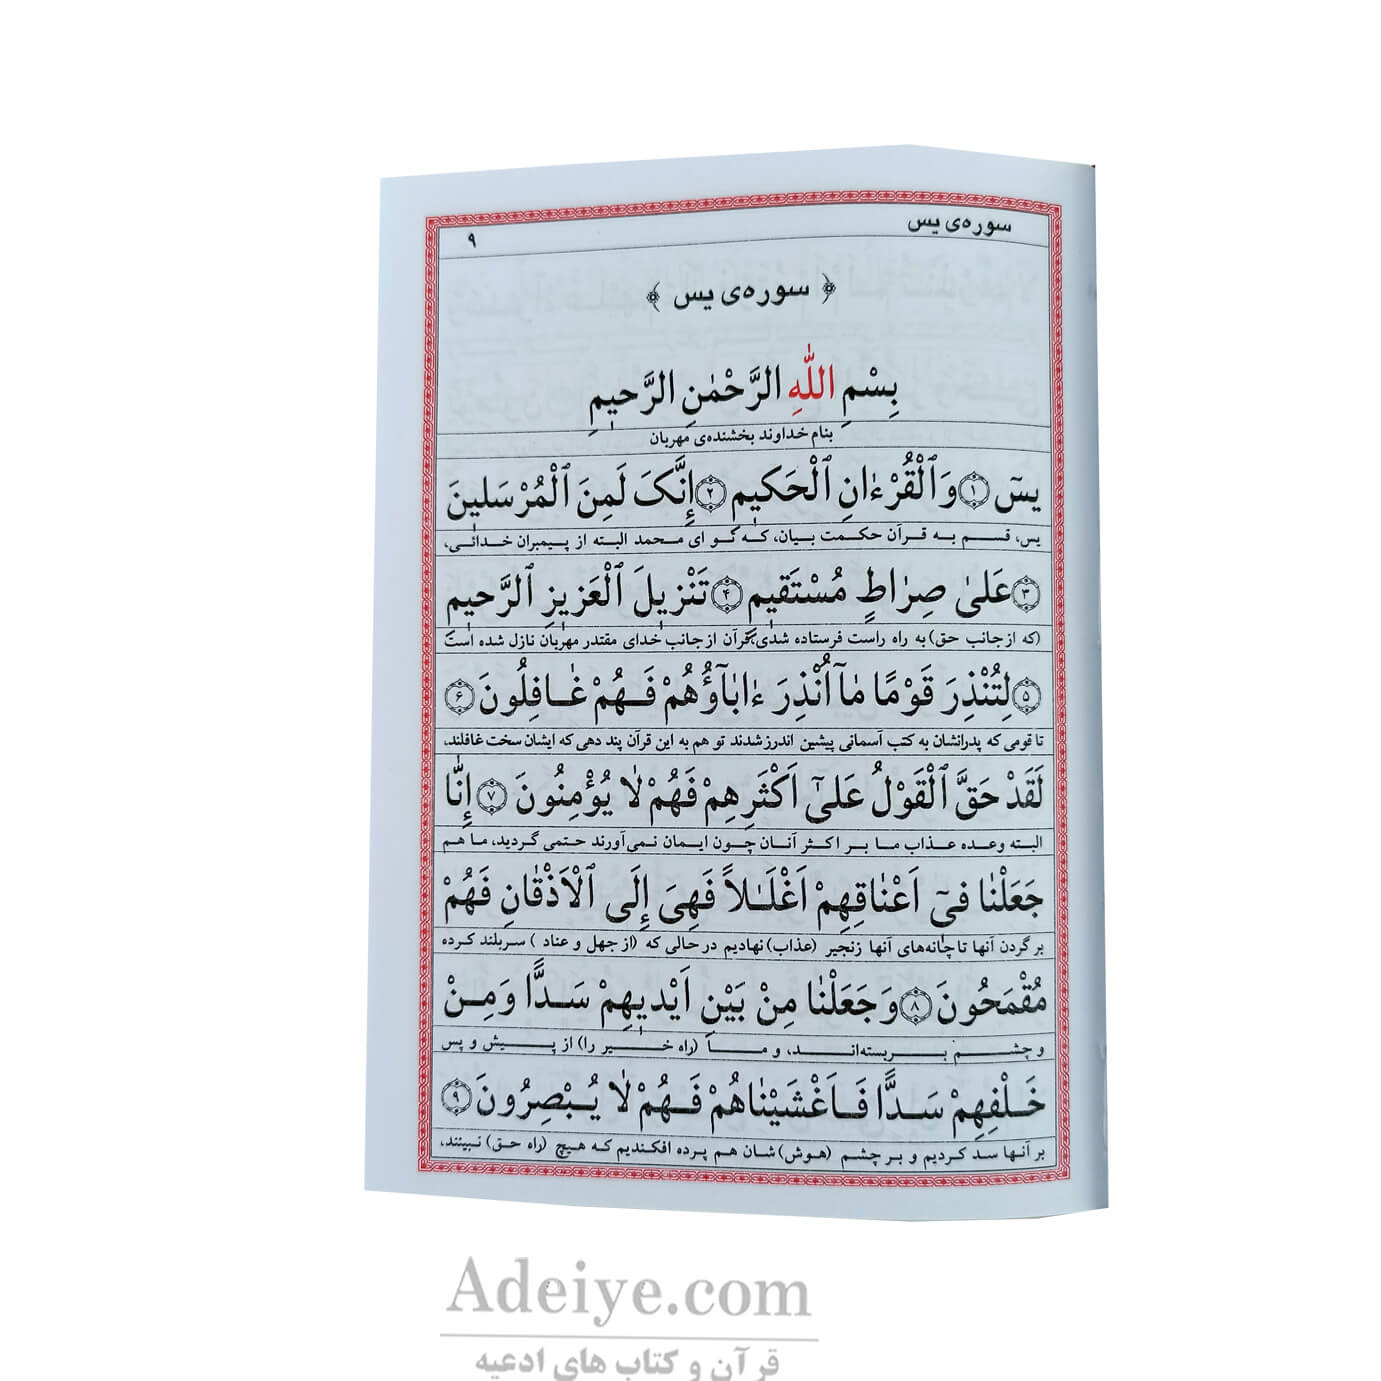 سوره‌ی یس ۹
﴿ سوره‌ی یس ﴾
بِسْمِ اللّٰهِ الرَّحْمٰنِ الرَّحیمِ
بنام خداوند بخشنده‌ی مهربان
یسٓ ۱ وَٱلْقُرْءٰانِ ٱلْحَکیمِ ۲ إِنَّکَ لَمِنَ ٱلْمُرْسَلینَ
یس، قسم به قرآن حکمت بیان، که تو ای محمد البته از پیمبران خدائی،
۳ عَلیٰ صِرٰاطٍ مُسْتَقیمٍ ۴ تَنْزیلَ ٱلْعَزیزِ ٱلرَّحیمِ
(که از جانب حق) به راه راست فرستاده شدی، قرآن از جانب خدای مقتدر مهربان نازل شده است
۵ لِتُنْذِرَ قَوْمًا مٰآ اُنْذِرَ ءٰابٰآؤُهُمْ فَهُمْ غٰافِلُونَ ۶
تا قومی که پدرانشان به کتب آسمانی پیشین اندرز شدند تو هم به این قرآن پند دهی که ایشان سخت غافلند،
لَقَدْ حَقَّ ٱلْقَوْلُ عَلیٰٓ اَکْثَرِهِمْ فَهُمْ لٰا یُؤْمِنُونَ ۷ إِنّٰا
البته وعده عذاب ما بر اکثر آنان چون ایمان نمی‌آورند حتمی گردید، ما هم
جَعَلْنٰا فیٓ اَعْنٰاقِهِمْ اَغْلَـٰلاً فَهِیَ إِلَی ٱلْاَذْقٰانِ فَهُمْ
بر گردن آنها تا چانه‌های آنها زنجیر (عذاب) نهادیم در حالی که (از جهل و عناد ) سربلند کرده
مُقْمَحُونَ ۸ وَجَعَلْنٰا مِنْ بَیْنِ اَیْدیهِمْ سَدًّا وَمِنْ
و چشم بربسته‌اند، و ما (راه خیر را) از پیش و پس
خَلْفِهِمْ سَدًّا فَاَغْشَیْنٰاهُمْ فَهُمْ لٰا یُبْصِرُونَ ۹
بر آنها سد کردیم و بر چشم (هوش) شان هم پرده افکندیم که هیچ (راه حق) نبینند،
Adeiye.com
قرآن و کتاب های ادعیه